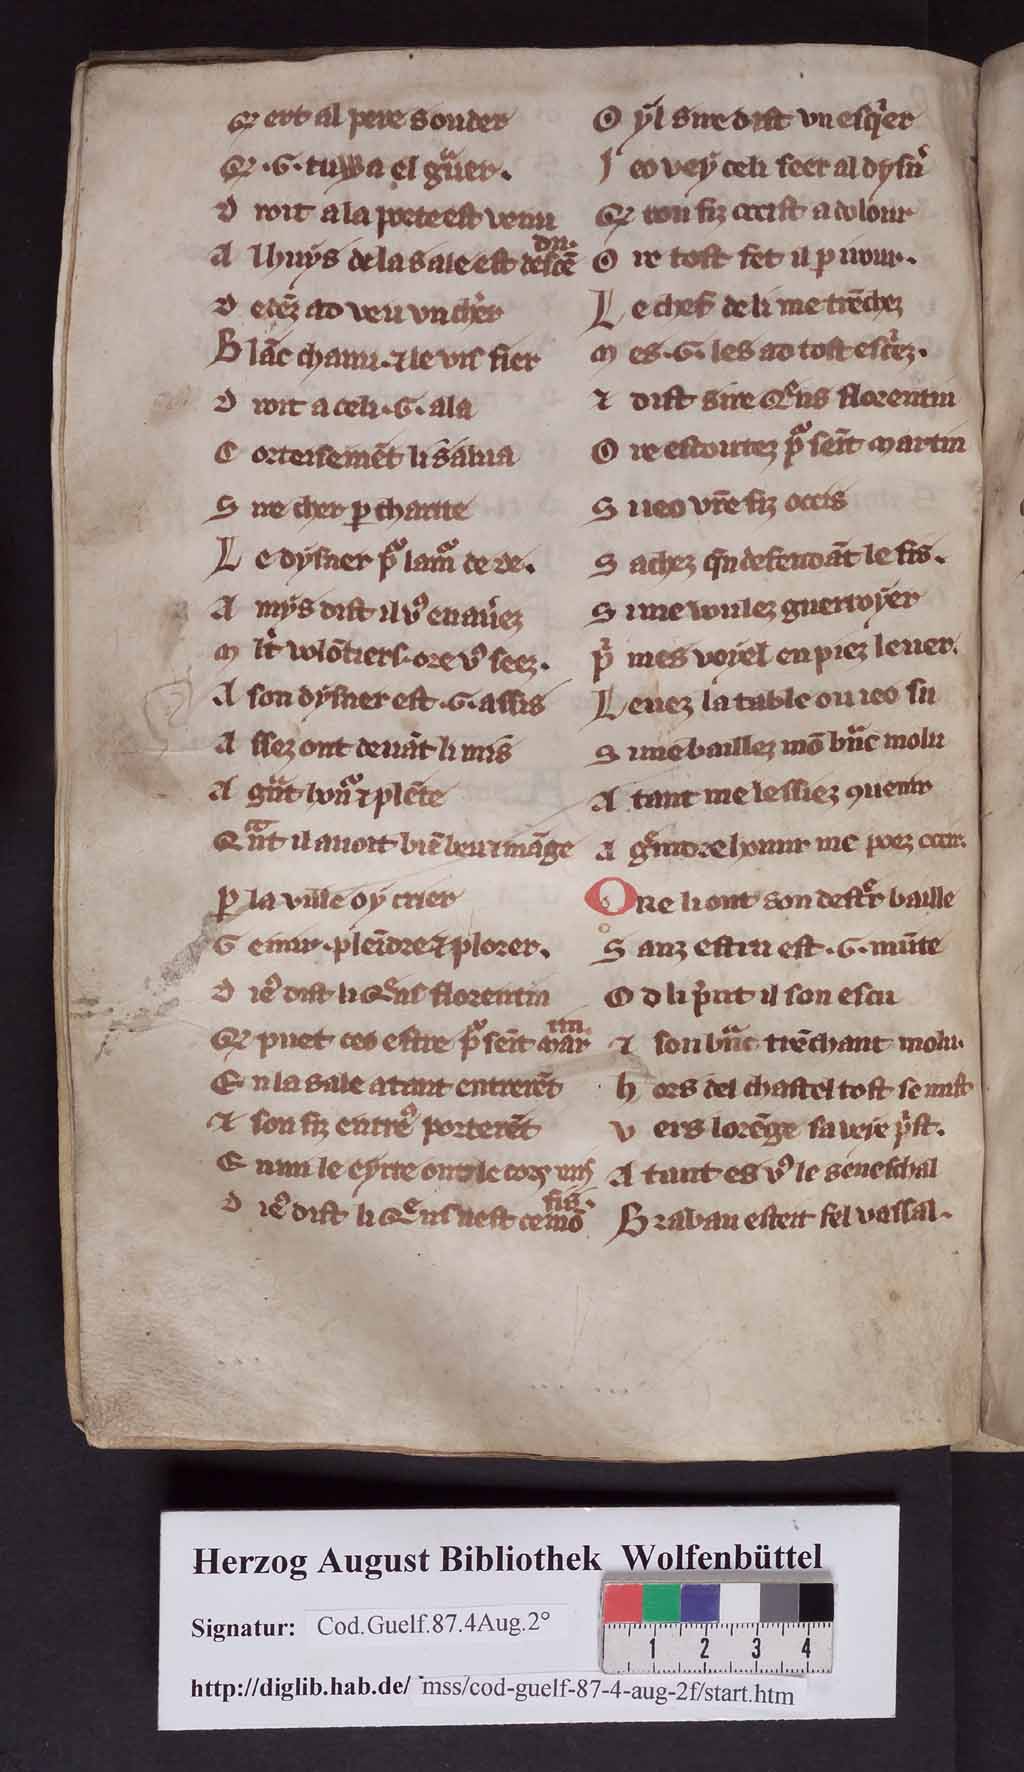 Qe ert al pere souder
Qe .G. tuwa el gͣuer.
D roit a la porte est venu
A l huys de la sale est descēdu.
D edēz ad veu vn cheͥr
B lāc chanu. ⁊ le vis fier
D roit a celi .G. ala
C orteisemēt li salua
S ire cher ꝑ charite
L e dysner pͬ lamͬ de de.
A mys dist il vꝰ en aūez
M lt̄ volōtiers. ore vꝰ seez.
A son dysner est .G. assis
A ssez ont deuāt li mis
A gͣnt ⁊ plēte
Qͣnt il auoit biē beu ⁊ māge
ꝑ la vile oy crier
G emir. pleīdre ⁊ plorer.
D ieꝰ dist li Qͤns florentin
Qe puet ceo estre pͬ seīt martin.
E n la sale atant entrerēt
⁊ son fiz entreꝰ porterēt
E nmi le eyrre ont le cors mis
D ieꝰ dist li Qͤns nest ce mō fis.
O yl sire dist vn esqͥer
I eo vey celi seer al dysn̄
Qe ton fiz occist a dolour
O re tost fet il ꝑ irour.
L e chef de li me trēchez
M es .G. les ad tost escͥez.
⁊ dist sire Qͤns florentin
O re escoutez pͬ seīt martin
S i ieo vr̄e fiz occis
S achez qͤn defendāt le fis.
S i me woulez guerroyer
pͥ mes voyel en piez leuer.
L euez la table ou ieo su
S i me baillez mō bͣnc molu
A tant me lessiez ꝯuenir
A gͣnt honur me poez occir.
O Re li ont son destͤr baille
S anz estriu est .G. mūte
O d li pͥnt il son escu
⁊ son bͣnc trēchant molu.
H ors del chastel tost se mist
V ers lorēge sa veie pͥst.
A tant es vꝰ le seneschal
B rabau esteit fel vassal.
Herzog August Bibliothek Wolfenbüttel
Signatur: Cod.Guelf.87.4Aug.2°
1 2 3 4
http://diglib.hab.de/ mss/cod-guelf-87-4-aug-2f/start.htm